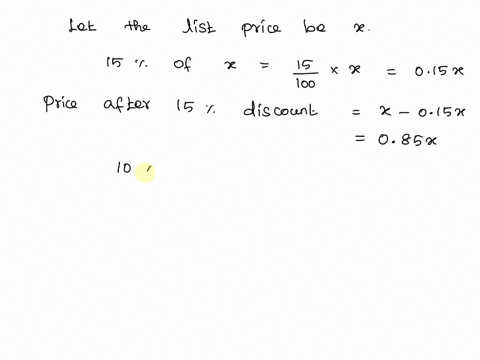 Let the list price be x.
15 % of x = 15/100 × x = 0.15x
Price after 15 % discount = x – 0.15x
= 0.85x
10 %